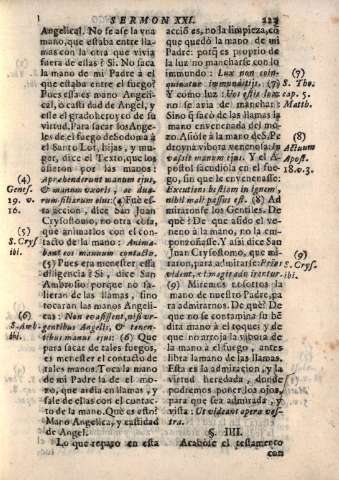 SERMON XXI. 223
Angelical. No se ase la vna
mano, que estaba entre lla-
mas con la otra que vivia
fuera de ellas? Si. No saca
la mano de mi Padre à el
que estaba entre el fuego?
Pues essa es mano Angeli-
cal, ò castidad de Angel, y
esse el grado heroyco de su
virtud. Para sacar los Ange-
les de el fuego de Sodoma à
el Santo Lot, hijas, y mu-
ger, dice el Texto, que los
asieron por las manos:
Aprehenderunt manum ejus,
& manum uxoris, ac dua-
rum filiarum ejus: (4) Fuè es-
ta accion, dice San Juan
Crysostomo, no otra cosa,
que animarlos con el contac-
to de la mano: Anima-
bant eos manuum contactu.
(5) Pues era menester, essa
diligencia? Si, dice San
Ambrosio: porque no sa-
lieran de las llamas, sino
tocaran las manos Angeli-
cas: Non evasissent, nisi ur-
gentibus Angelis, & tenen-
tibus manus ejus: (6) Que
para sacar de tales fuegos,
es menester el contacto de
tales manos. Toca la mano
de mi Padre la de el mo-
ro, que ardia en llamas, y
sale de ellas con el contac-
to de la mano. Què es esto?
Mano Angelica, y castidad
de Angel.
Lo que reparo en esta
(4)
Genes.
19. v.
16.
(5)
S. Crys
ibi.
(6)
S. Amb
ibi.
acciõ es, no la limpieza, cõ
que quedò la mano de mi
Padre: porq̃ es proprio de
la luz no mancharse con lo
immundo: Lux non coin-
quinatur immunditijs,
diciendo luz
no se avia de manchar:
Sino q̃ sacò de las llamas la
mano envenenada del mo-
ro. Asiòse à la mano de S. Pe-
dro vna vibora venenosa: In-
vasit manum ejus. Y el A-
postol sacudiola en el fue-
go, sin que le envenenasse:
Excutiens bestiam in ignem,
nihil mali passus est. (8) Ad-
miraronse los Gentiles. De
què? De que asido el ve-
neno à la mano, no la em-
ponzoñasse. Y assi dice San
Juan Crysostomo, que mi-
raron, para admirarse:
(9) Miremos nosotros la
mano de nuestro Padre, pa-
ra admirarnos. De què? De
que no se contamina su bẽ-
dita mano à el toque; y de
que no arroja la vibora de
la mano à el fuego, antes
libra la mano de las llamas.
Esta es la admiracion, y la
virtud heredada, donde
podremos poner los ojos,
para que sea admirada, y
vista: Ut videant opera ves-
tra.
§. IIII.
Acabòse el testamento
con
(7)
S. Tho.
cap. 5.
Matth.
(8)
Actuum
Apost.
18. v. 3.
(9)
S. Crys.
ibi.